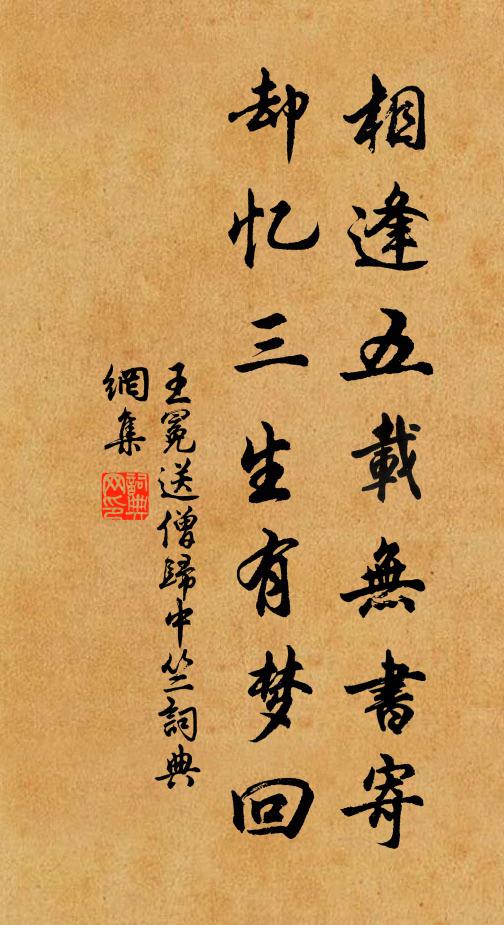 相逢五載無書寄
却忆三生有梦回
王冕送僧歸中竺詞典
網集
詞典
网印